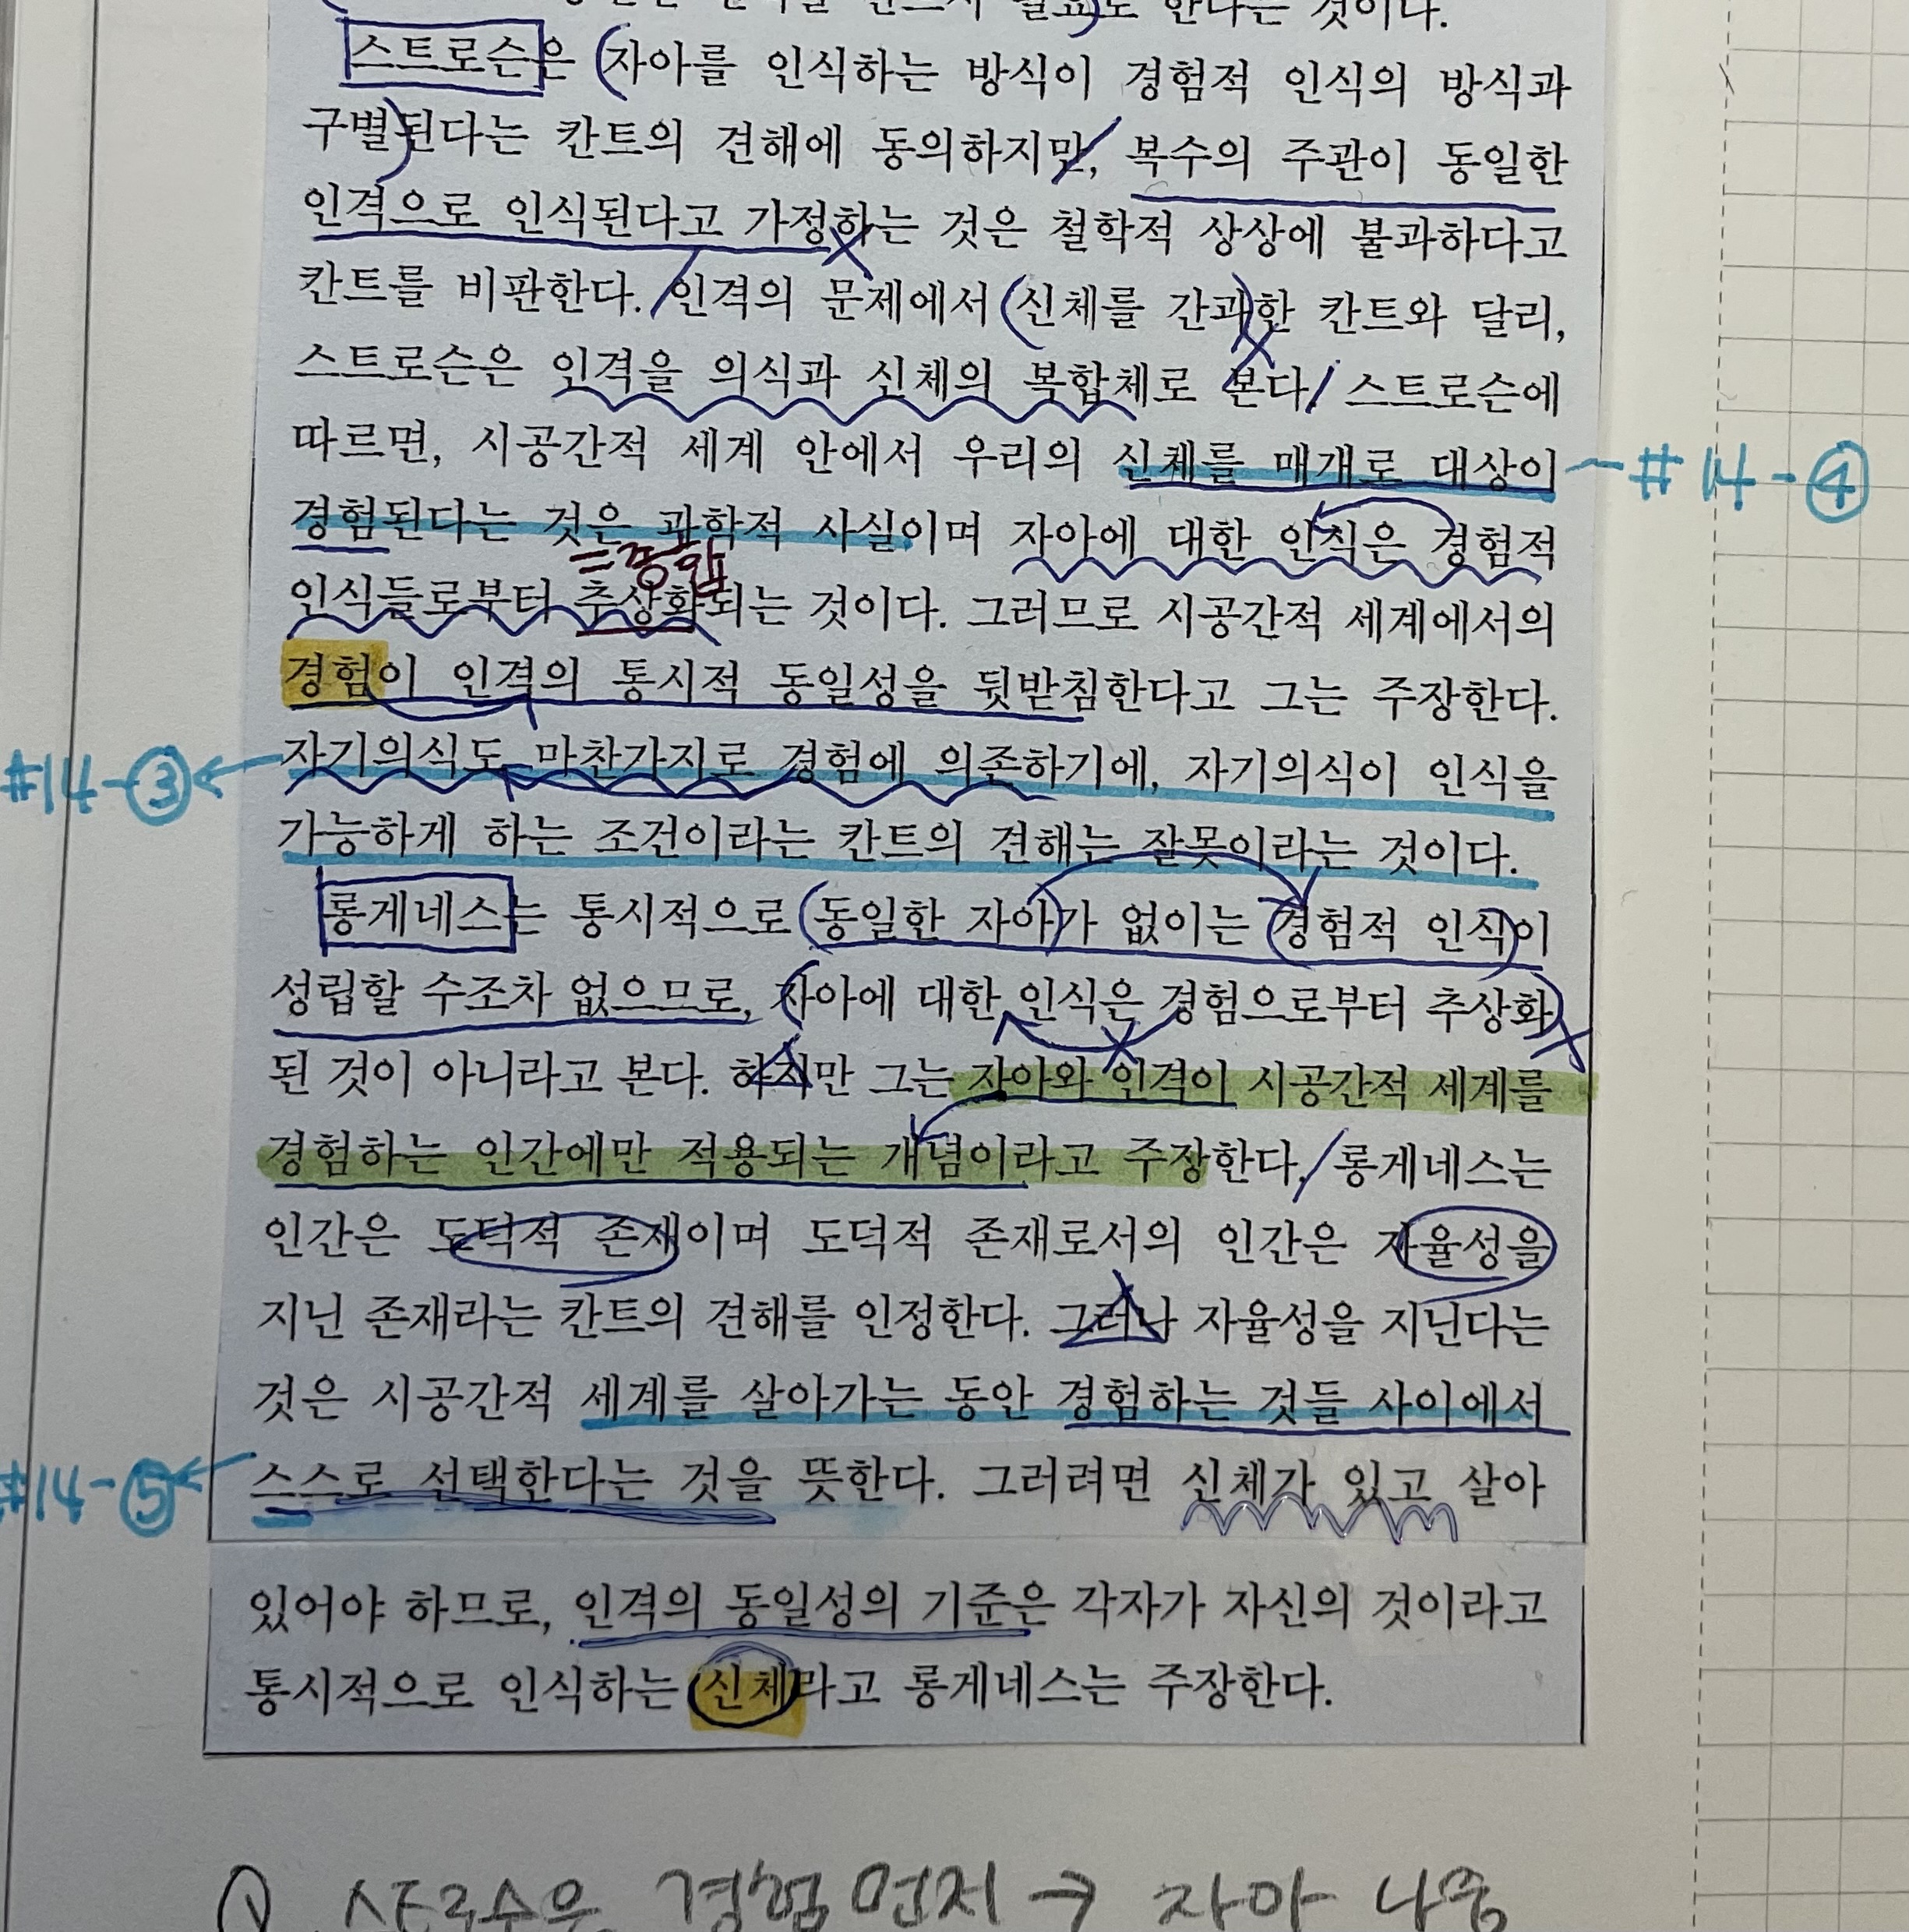 것이다.
스트로슨은 자아를 인식하는 방식이 경험적 인식의 방식과
구별된다는 칸트의 견해에 동의하지만, 복수의 주관이 동일한
인격으로 인식된다고 가정하는 것은 철학적 상상에 불과하다고
칸트를 비판한다. 인격의 문제에서 신체를 간과한 칸트와 달리,
스트로슨은 인격을 의식과 신체의 복합체로 본다. 스트로슨에
따르면, 시공간적 세계 안에서 우리의 신체를 매개로 대상이 #14-④
경험된다는 것은 과학적 사실이며 자아에 대한 인식은 경험적
인식들로부터 추상화되는 것이다. 그러므로 시공간적 세계에서의
경험이 인격의 통시적 동일성을 뒷받침한다고 그는 주장한다.
#14-③ 자기의식도 마찬가지로 경험에 의존하기에, 자기의식이 인식을
가능하게 하는 조건이라는 칸트의 견해는 잘못이라는 것이다.
롱게네스는 통시적으로 동일한 자아가 없이는 경험적 인식이
성립할 수조차 없으므로, 자아에 대한 인식은 경험으로부터 추상화
된 것이 아니라고 본다. 하지만 그는 자아와 인격이 시공간적 세계를
경험하는 인간에만 적용되는 개념이라고 주장한다. 롱게네스는
인간은 도덕적 존재이며 도덕적 존재로서의 인간은 자율성을
지닌 존재라는 칸트의 견해를 인정한다. 그러나 자율성을 지닌다는
것은 시공간적 세계를 살아가는 동안 경험하는 것들 사이에서
#14-⑤ 스스로 선택한다는 것을 뜻한다. 그러려면 신체가 있고 살아
있어야 하므로, 인격의 동일성의 기준은 각자가 자신의 것이라고
통시적으로 인식하는 신체라고 롱게네스는 주장한다.
Q. 스트로슨은 경험 먼저 → 자아 나중